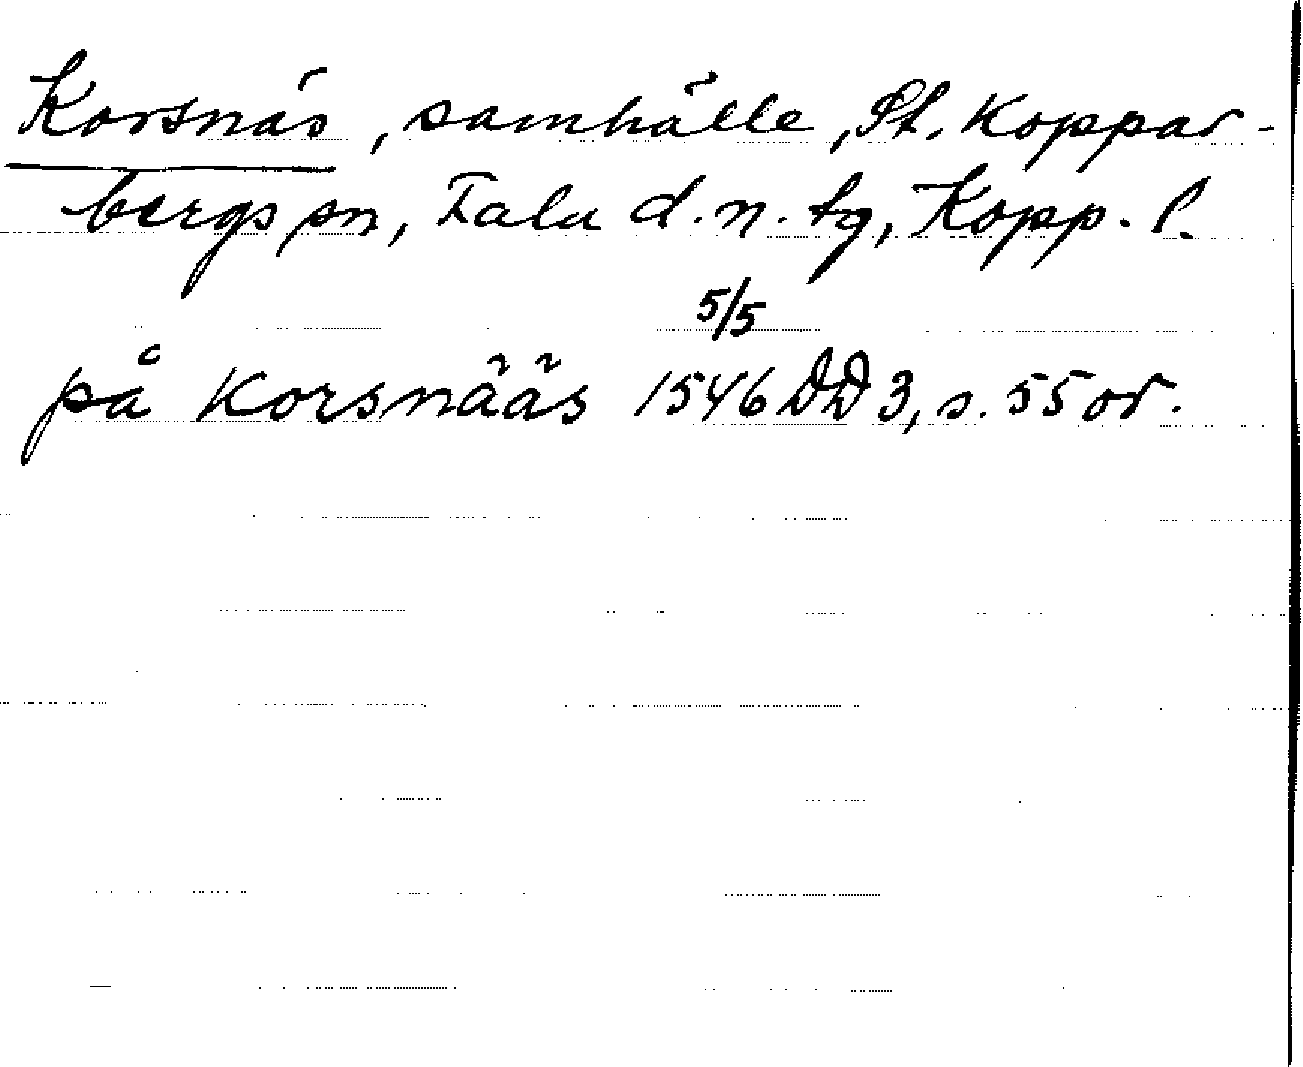 Korsnäs, samhälle, St. Koppar-
bergs sn, Falu d.n. tg, Kopp. l.
5/5
på Korsnääs 1546 DD 3, s. 55 or.